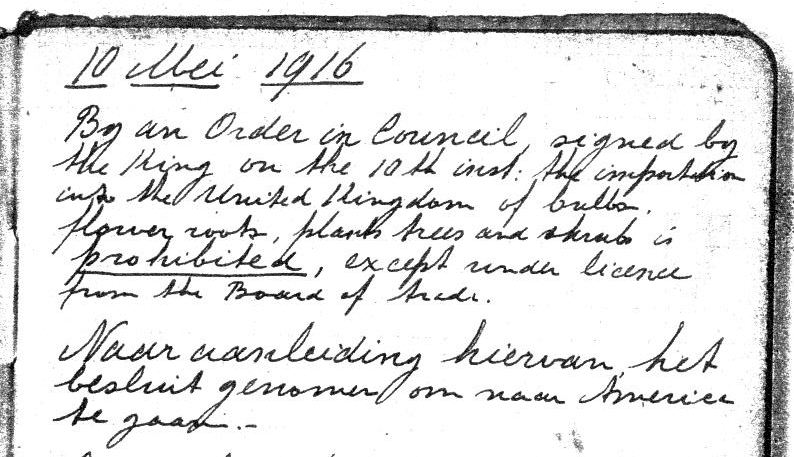 10 Mei 1916
By an Order in Council, signed by
the King on the 10th inst: the importation
into the United Kingdom of bulbs,
flower roots, plants trees and shrubs is
prohibited, except under licence
from the Board of trade.
Naar aanleiding hiervan, het
besluit genomen om naar America
te gaan.-